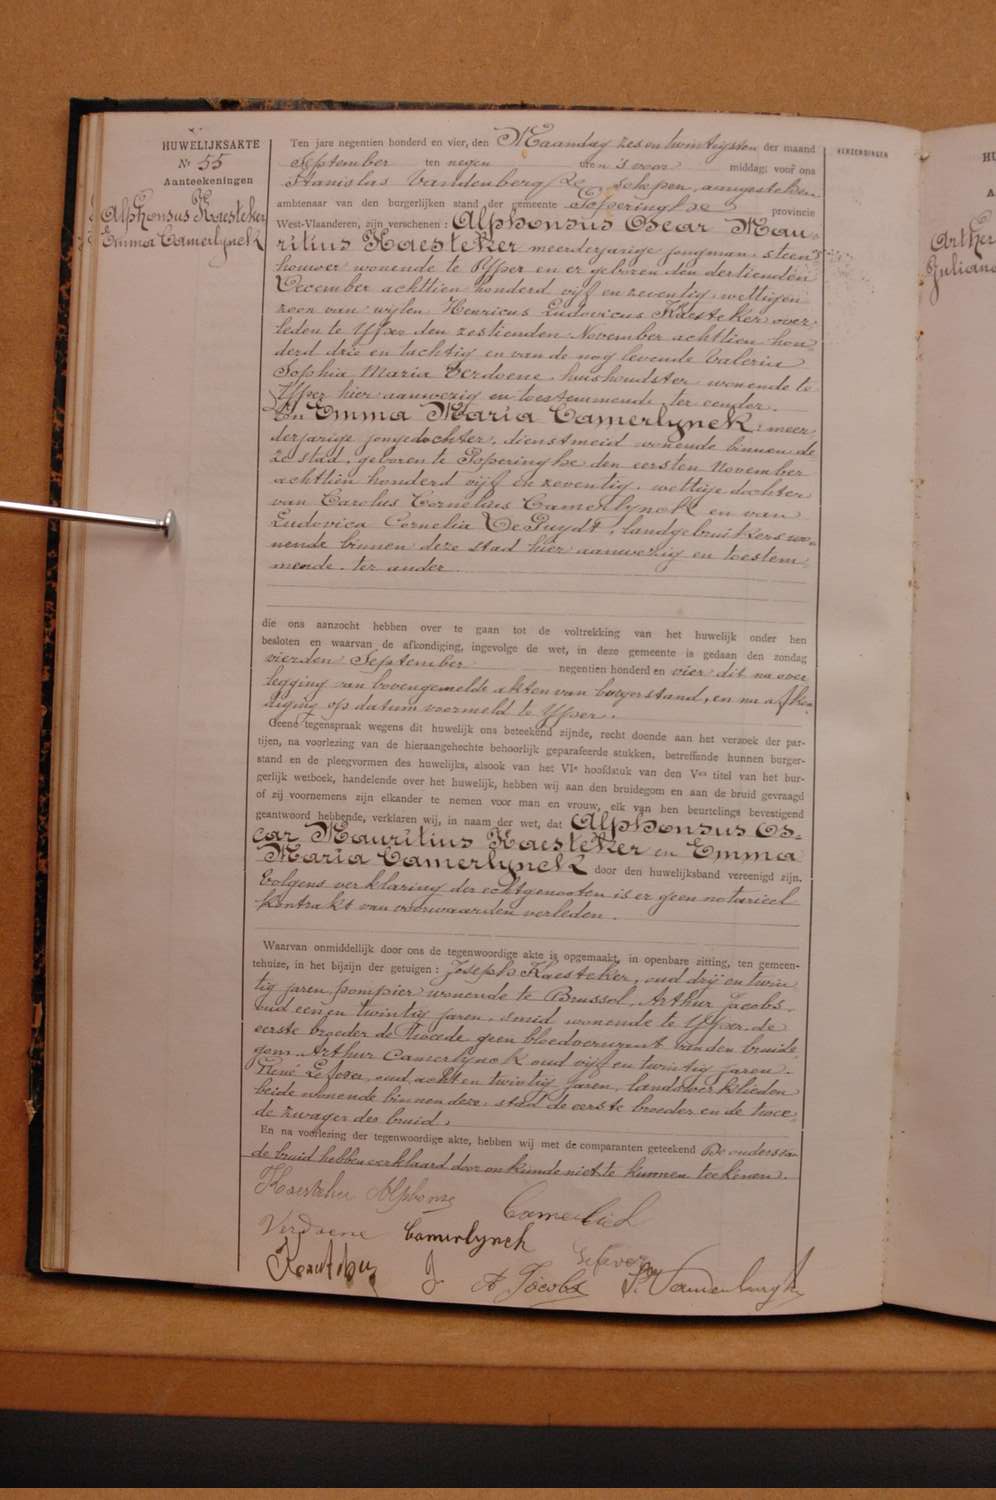 HUWELIJKSAKTE
Nr 55
Aanteekeningen
Alphonsus Kaesteker
Emma Camerlynck
Ten jare negentien honderd en vier, den Maandag zes en twintigsten der maand
September ten negen uren 's voor middag, voor ons
Stanislas Vandenberghe, schepen, aangesteken
ambtenaar van den burgerlijken stand der gemeente Poperinghe provincie
West-Vlaanderen, zijn verschenen : Alphonsus Oscar Mau-
ritius Kaesteker meerderjarige jongman, steen-
houwer wonende te Yper en er geboren den dertienden
December achttien honderd vijf en zeventig, wettigen
zoon van wijlen Henricus Ludovicus Kaesteker over-
leden te Yper den zestienden November achttien hon-
derd drie en tachtig en van de nog levende Valeria
Sophia Maria Verdoene, huishoudster wonende te
Yper hier aanwezig en toestemmende ter eender.
En Emma Maria Camerlynck, meer-
derjarige jongedochter, dienstmeid wonende binnen de-
ze stad, geboren te Poperinghe den eersten November
achttien honderd vijf en zeventig, wettige dochter
van Carolus Cornelius Camerlynck en van
Ludovica Cornelia DePuydt, landgebruikers wo-
nende binnen deze stad hier aanwezig en toestem-
mende, ter ander.
die ons aanzocht hebben over te gaan tot de voltrekking van het huwelijk onder hen
besloten en waarvan de afkondiging, ingevolge de wet, in deze gemeente is gedaan den zondag
vierden September negentien honderd en vier dit na over-
legging van bovengemelde akten van burgerstand, en na afkon-
diging op datum voormeld te Yper.
Geene tegenspraak wegens dit huwelijk ons beteekend zijnde, recht doende aan het verzoek der par-
tijen, na voorlezing van de hieraangehechte behoorlijk geparafeerde stukken, betreffende hunnen burger-
stand en de pleegvormen des huwelijks, alsook van het VIe hoofdstuk van den Ven titel van het bur-
gerlijk wetboek, handelende over het huwelijk, hebben wij aan den bruidegom en aan de bruid gevraagd
of zij voornemens zijn elkander te nemen voor man en vrouw, elk van hen beurtelings bevestigend
geantwoord hebbende, verklaren wij, in naam der wet, dat Alphonsus Os-
car Mauritius Kaesteker en Emma
Maria Camerlynck door den huwelijksband vereenigd zijn.
Volgens verklaring der echtgenooten is er geen notarieel
kontrakt van voorwaarden verleden.
Waarvan onmiddellijk door ons de tegenwoordige akte is opgemaakt, in openbare zitting, ten gemeen-
tehuize, in het bijzijn der getuigen : Joseph Kaesteker, oud drij en twin-
tig jaren pompier wonende te Brussel, Arthur Jacobs,
oud een en twintig jaren, smid wonende te Yper, de
eerste broeder de tweede geen bloedverwant van den bruide-
gom. Arthur Camerlynck oud vijf en twintig jaren.
René Lefever, oud acht en twintig jaren, landswerklieden
beide wonende binnen deze stad de eerste broeder en de twee-
de zwager des bruid.
En na voorlezing der tegenwoordige akte, hebben wij met de comparanten geteekend De ouders van
de bruid hebben verklaard door onkunde niet te kunnen teekenen.
Kaesteker Alphons
Verdoene Camerlynck
Lefever
Kaesteker J A Jacobs S. Vandenberghe
VERZENDINGEN
Arthur
Juliana